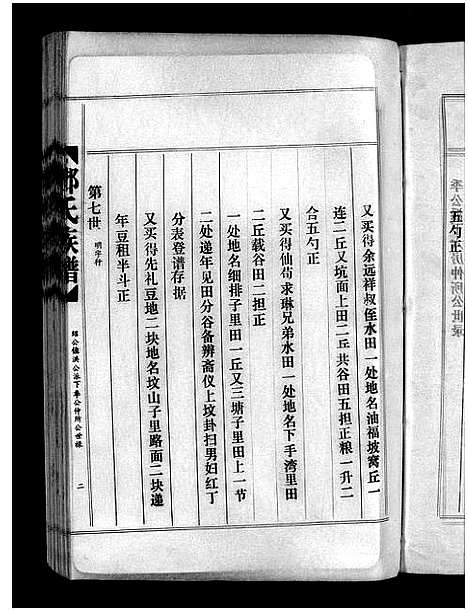 又买得余远祥叔侄水田一处地名油福坡窝丘一
连二丘又坑面上田二丘共谷田五担正粮一升二
合五勺正
又买得仙苟求琳兄弟水田一处地名下手湾里田
二丘载谷田二担正
一处地名细排子里田一丘又三塘子里田上一节
二处递年见田分谷备办斋仪上坟卦扫男妇红丁
分表登谱存据
又买得先礼豆地二块地名坟山子里路面二块递
年豆租半斗正
第七世 明字行
氏族谱
公世录
二